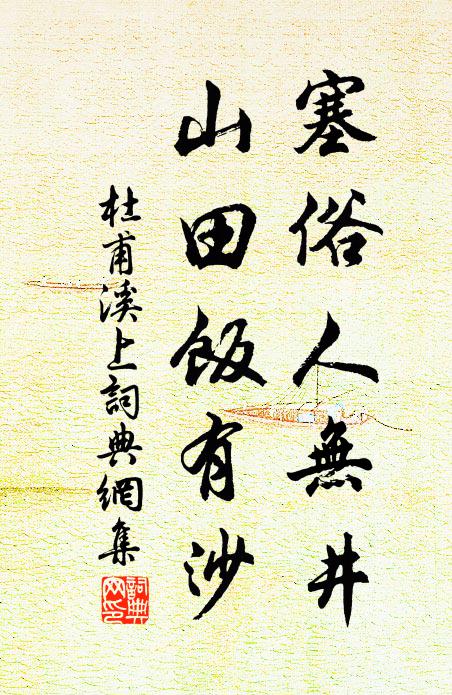 塞俗人無井
山田飯有沙
杜甫溪上詞典網集
詞典
网印